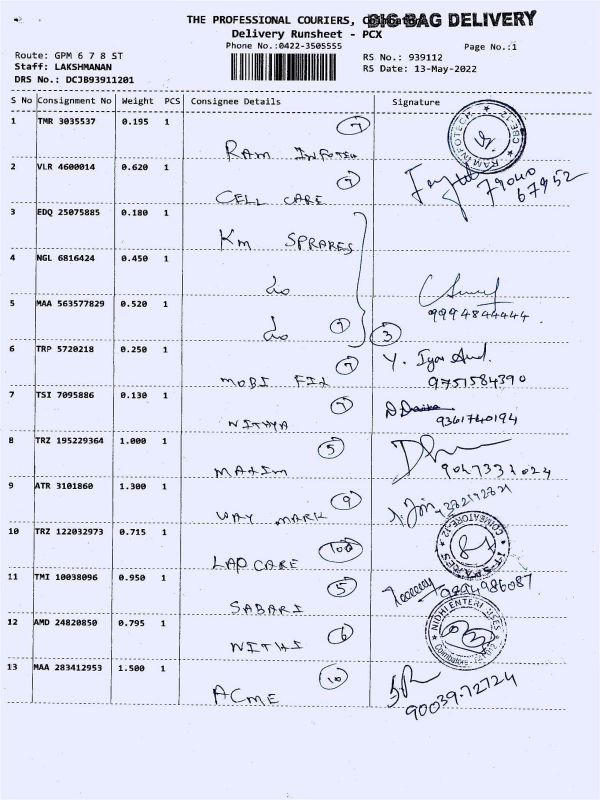 THE PROFESSIONAL COURIERS, Coimbatore
BIG BAG DELIVERY
Delivery Runsheet - PCX
Phone No.:0422-3505555
Page No.:1
Route: GPM 6 7 8 ST
RS No.: 939112
Staff: LAKSHMANAN
RS Date: 13-May-2022
DRS No.: DCJB93911201
S No Consignment No Weight PCS Consignee Details Signature
1 TMR 3035537 0.195 1 7
RAM INFOTECH
RAM INFOTECH CBE-12
2 VLR 4600014 0.620 1 7
CELL CARE
79040
67952
3 EDQ 25075885 0.180 1
KM SPRARES
4 NGL 6816424 0.450 1
do
5 MAA 563577829 0.520 1
do 7 3
9994844444
6 TRP 5720218 0.250 1 7
MOBI FIX
9751584390
7 TSI 7095886 0.130 1 7
NITHYA
9361740194
8 TRZ 195229364 1.000 1 5
MAXIM
9047331024
9 ATR 3101860 1.300 1 9
WAY MARK
10 TRZ 122032973 0.715 1 100
LAP CARE
COIMBATORE-12
11 TMI 10038096 0.950 1 5
SABARI
9894986087
12 AMD 24820850 0.795 1 6
NITHI
NIDHI ENTERPRISES
Coimbatore - 641 012
13 MAA 283412953 1.500 1 10
ACME
90039-72724